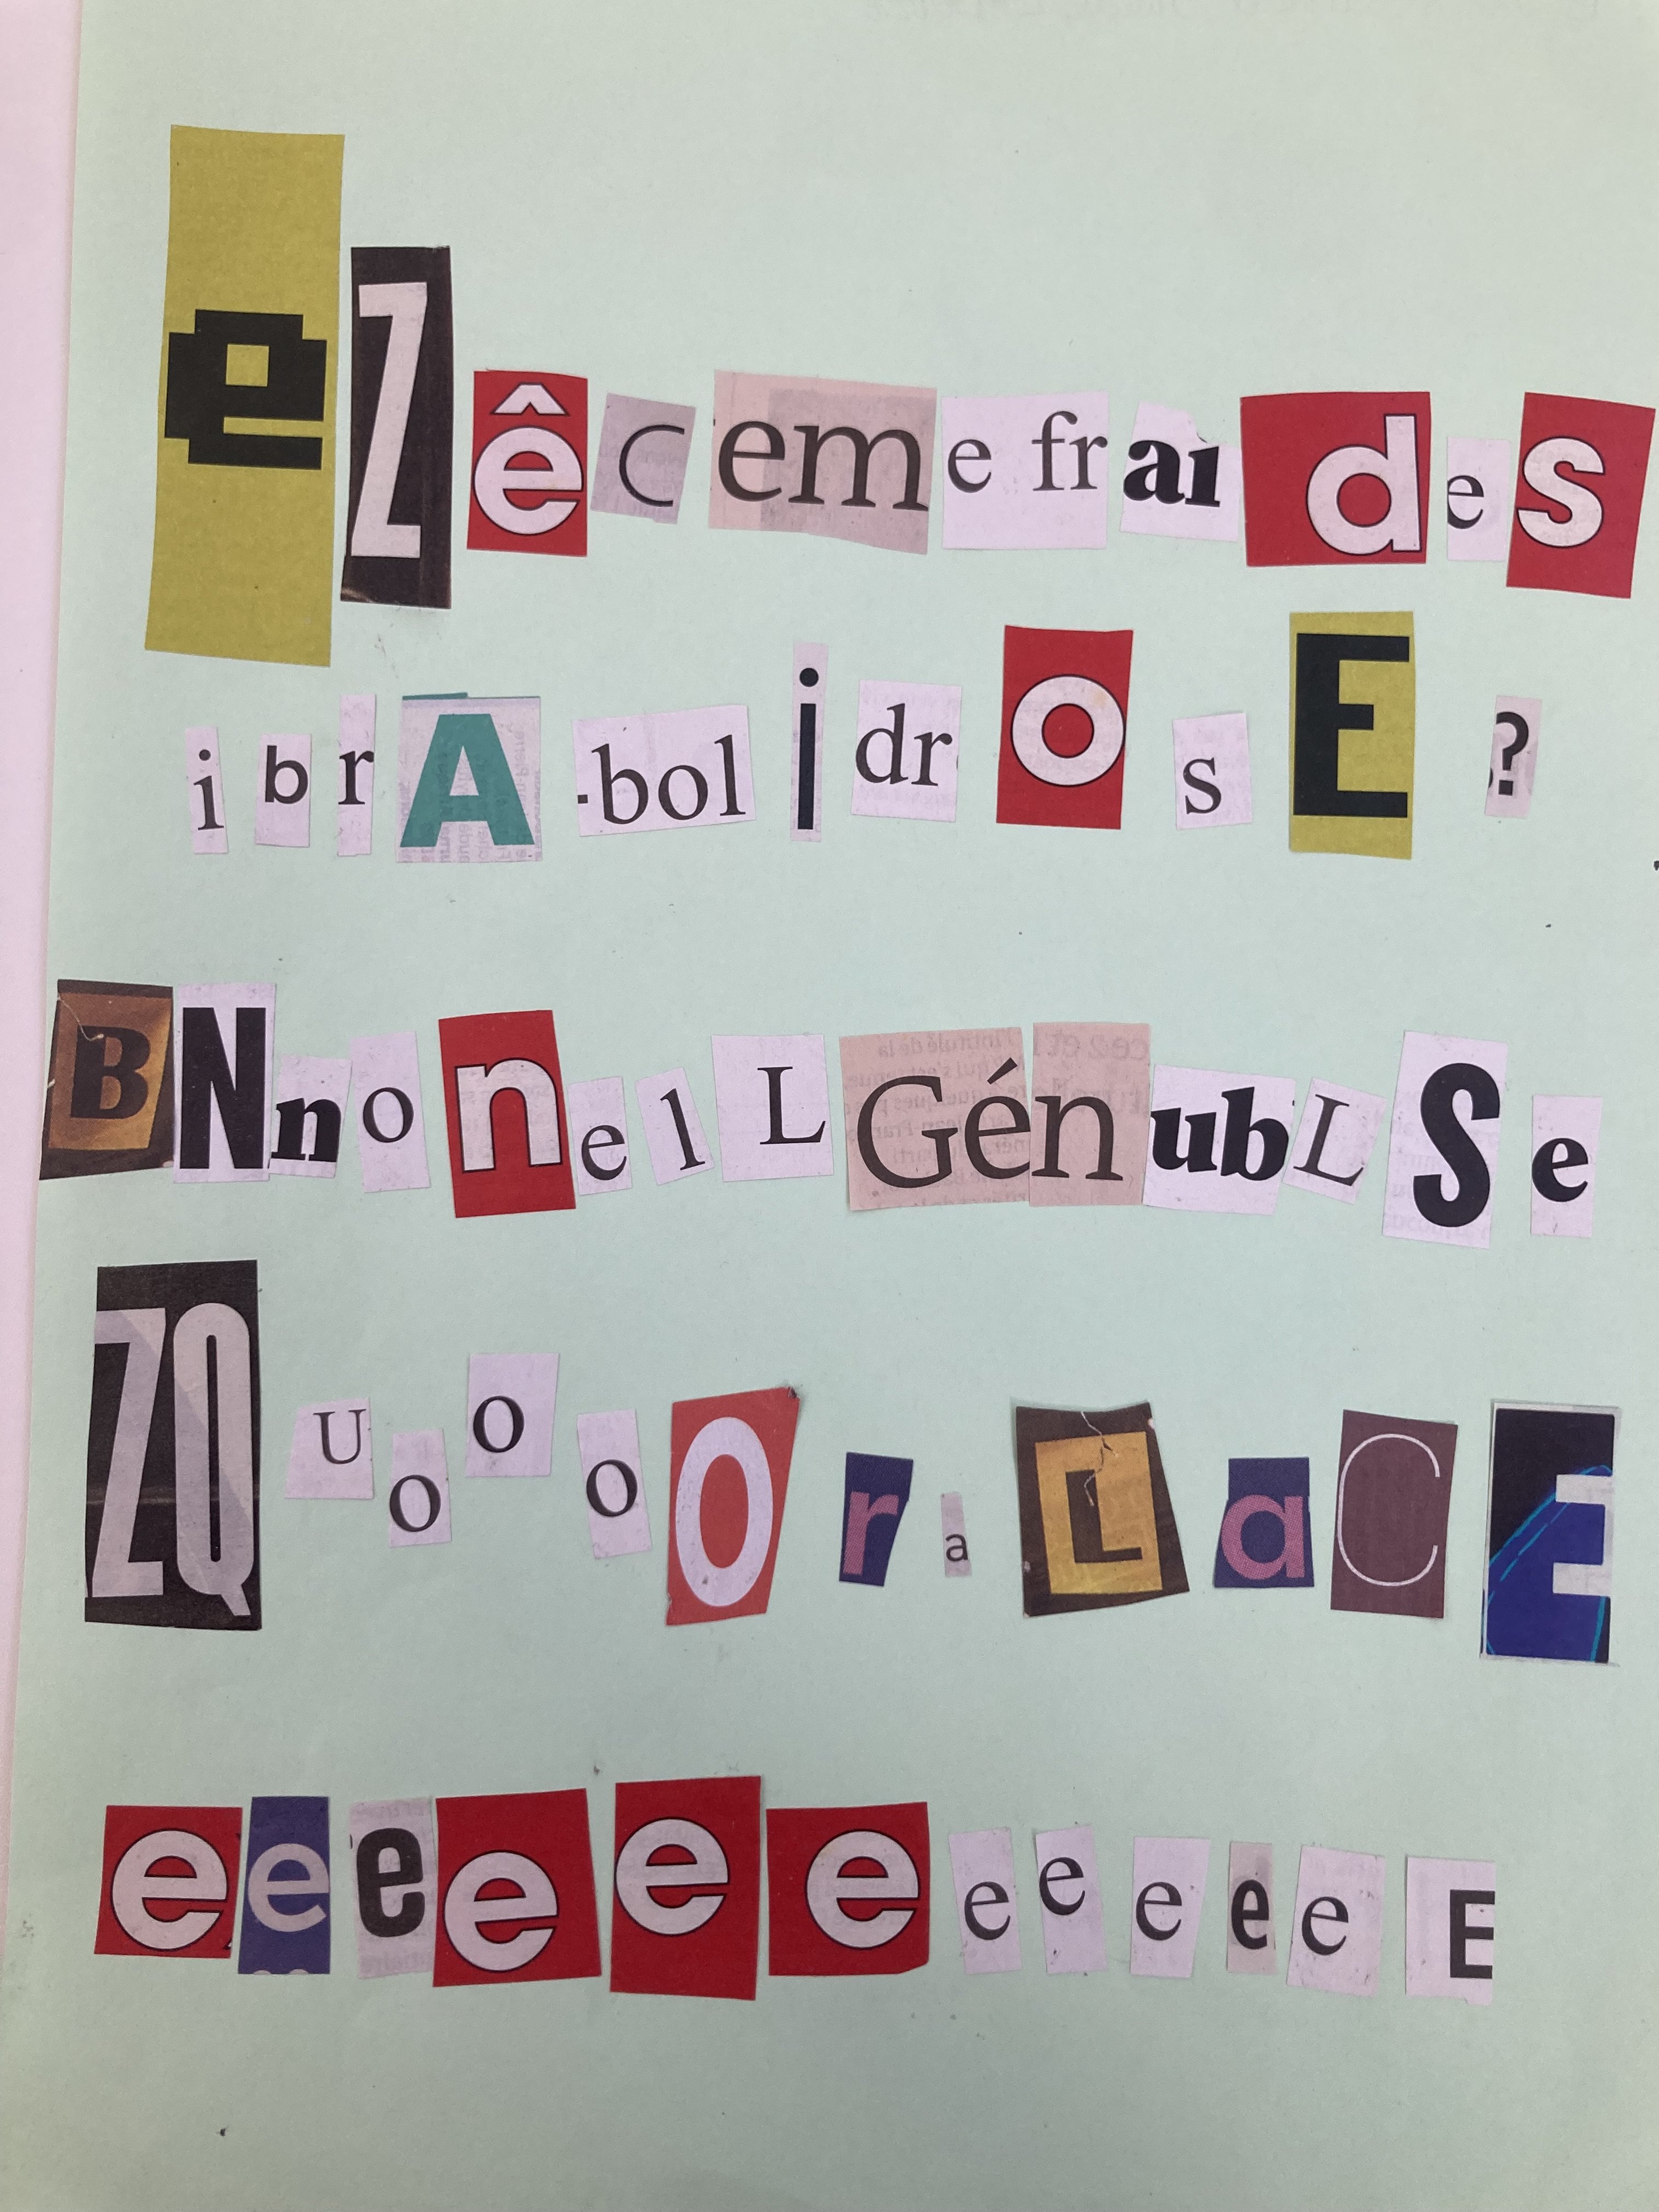 eZêceme fraides
ibrA-bolidrosE?
BNnonelLGénubLSe
ZQUoooOr.a LaCE
eeeeeeeeeeeE